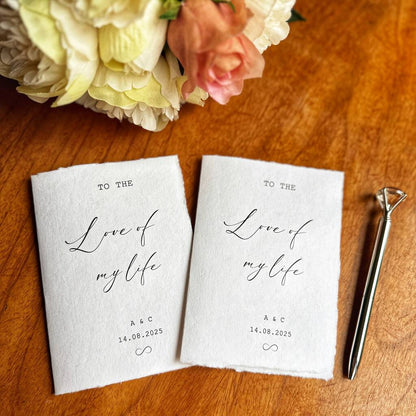 TO THE
Love of
my life
A & C
14.08.2025
∞
TO THE
Love of
my life
A & C
14.08.2025
∞